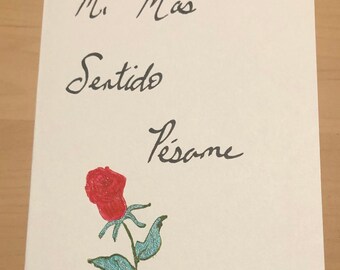 Mi Mas
Sentido
Pésame